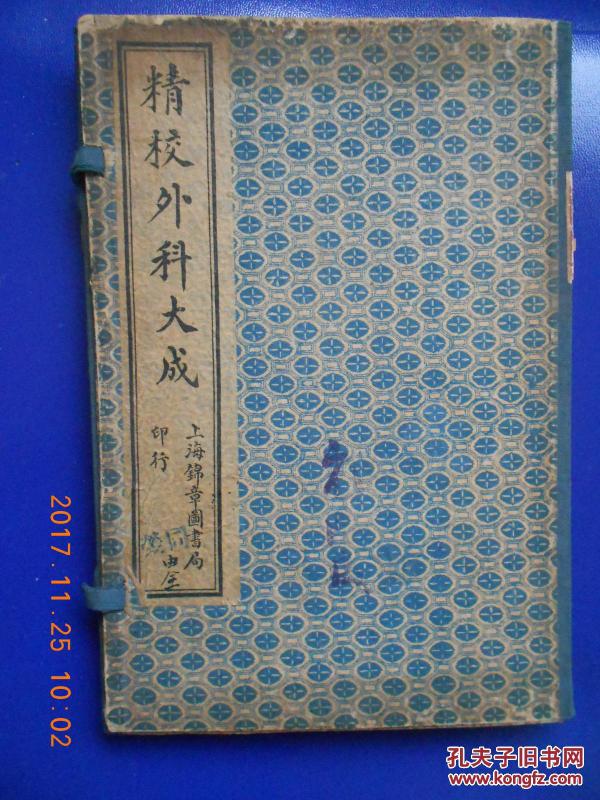 精校外科大成
上海錦章圖書局
印行
2017.11.25 10:02
孔夫子旧书网
www.kongfz.com